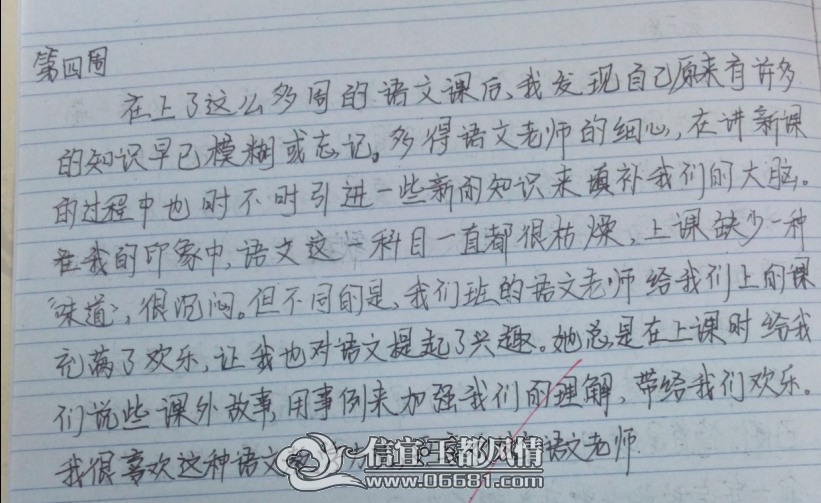 第四周
在上了这么多周的语文课后、我发现自己原来有许多
的知识早已模糊或忘记。多得语文老师的细心，在讲新课
的过程中也时不时引进一些新的知识来填补我们的大脑。
在我的印象中，语文这一科目一直都很枯燥，上课缺少一种
“味道”，很沉闷。但不同的是，我们班的语文老师给我们上的课
充满了欢乐，让我也对语文提起了兴趣。她总是在上课时给我
们说些课外故事，用事例来加强我们的理解，带给我们欢乐。
我很喜欢这种语文 语文老师
信宜玉都风情
www.06681.com